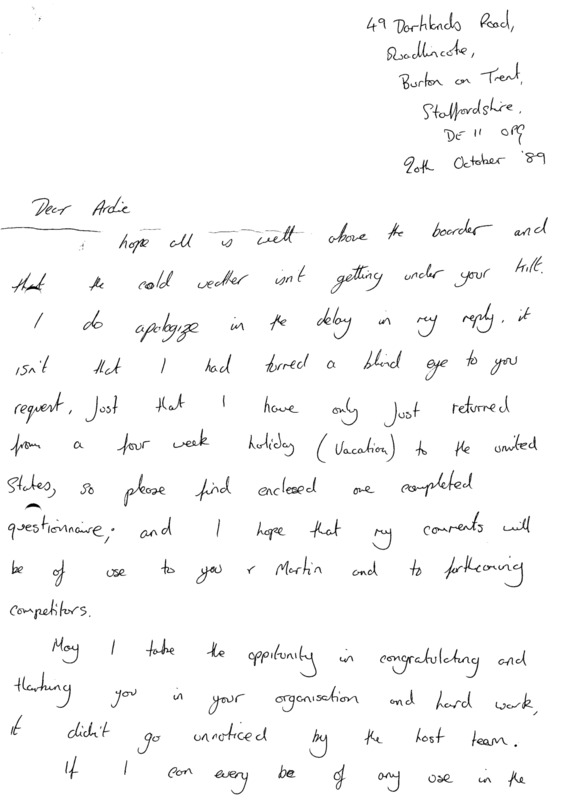 49 Darklands Road,
Swadlincote,
Burton on Trent,
Staffordshire.
DE11 0PG
20th October '89
Dear Ardie
hope all is well above the boarder and
that the cold weather isn't getting under your kilt.
I do apologize in the delay in my reply, it
isn't that I had turned a blind eye to you
request, Just that I have only Just returned
from a four week holiday (Vacation) to the united
States, so please find enclosed one completed
questionnaire; and I hope that my coments will
be of use to you & Martin and to forthcoming
competitors.
May I take the oppitunity in congratulating and
thanking you in your organisation and hard work,
it didn't go unnoticed by the host team.
If I can every be of any use in the